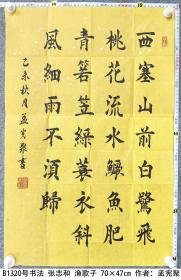 西塞山前白鷺飛
桃花流水鱖魚肥
青箬笠綠蓑衣斜
風細雨不湏歸
乙未秋月孟宪聚書
B1320号书法 张志和 渔歌子 70×47cm 作者：孟宪聚